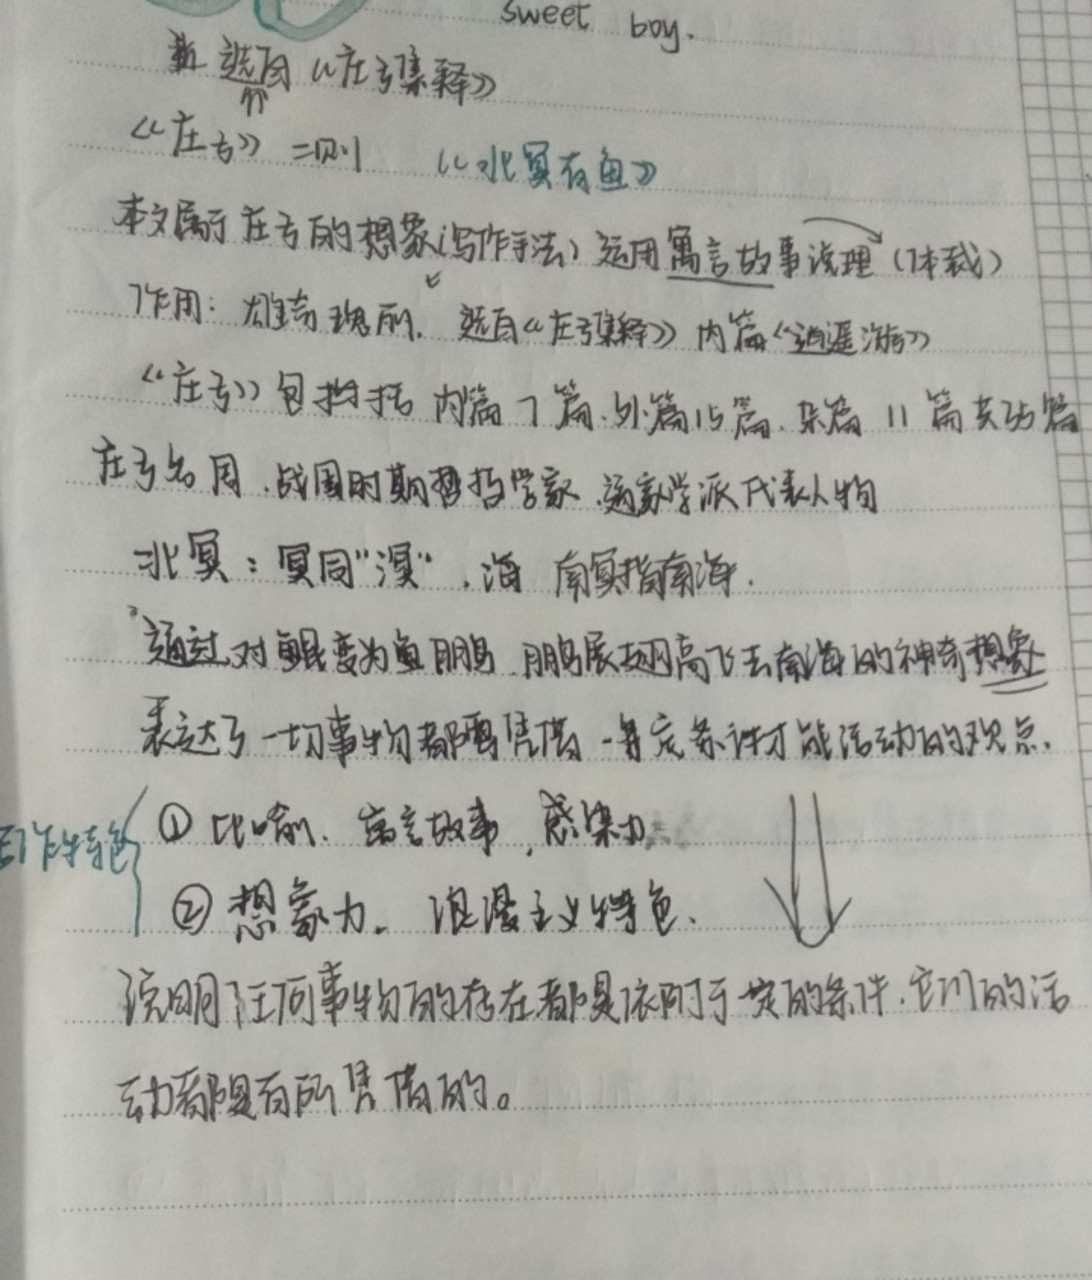 sweet boy.
选自《庄子集释》
《庄子》二则 《北冥有鱼》
本文属于庄子的想象(写作手法)运用寓言故事说理(体裁)
作用: 雄奇瑰丽. 选自《庄子集释》内篇《逍遥游》
《庄子》包括 内篇7篇.外篇15篇.杂篇11篇共35篇
庄子名周.战国时期哲学家.道家学派代表人物
北冥:冥同"溟".海 南冥指南海.
通过对鲲变为鱼鹏鸟 鹏鸟展翅高飞去南海的神奇想象
表达了一切事物都需凭借一定条件才能活动的观点.
写作特色
①比喻.寓言故事,感染力
②想象力. 浪漫主义特色.
说明任何事物的存在都是依附于一定的条件.它们的活
动都是有所凭借的。